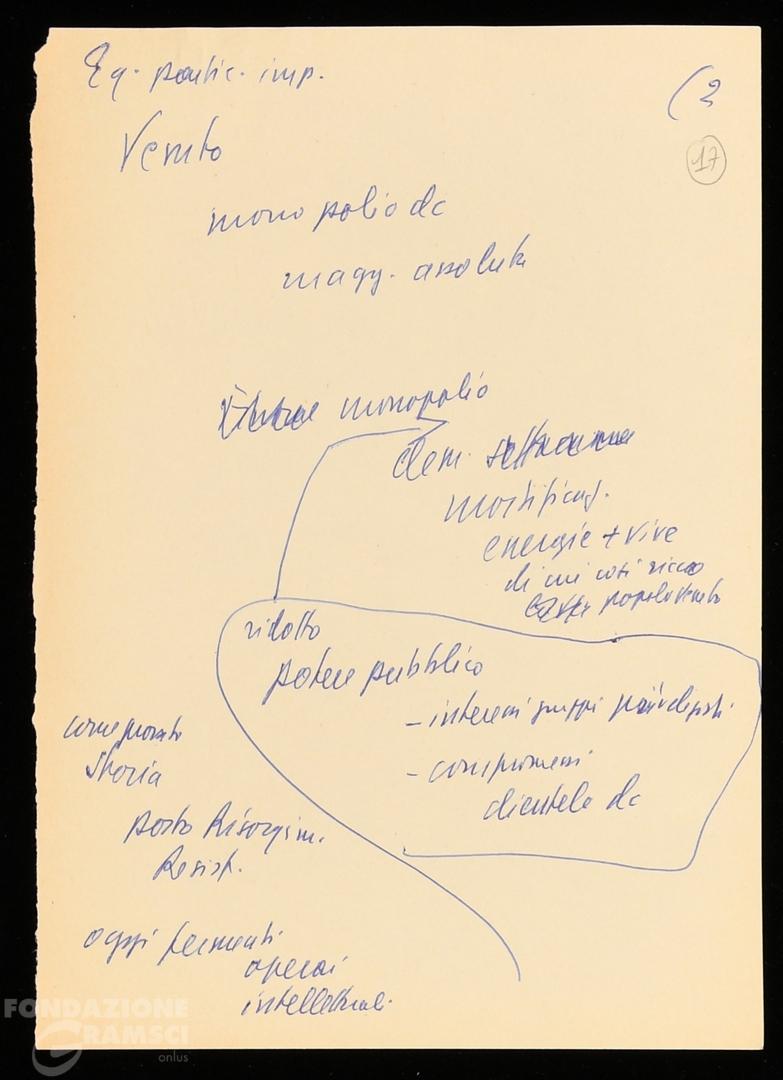 Eq. partic. imp.
(2
17
Veneto
monopolio dc
magg. assoluta
monopolio
dem.
mortificaz.
energie + vive
di un così ricco
popolo veneto
ridotto
potere pubblico
- interessi gruppi privilegiati
- compromessi
clientele dc
come provato
Storia
posto Risorgim.
Resist.
oggi fermenti
operai
intellettuali
FONDAZIONE
GRAMSCI
onlus